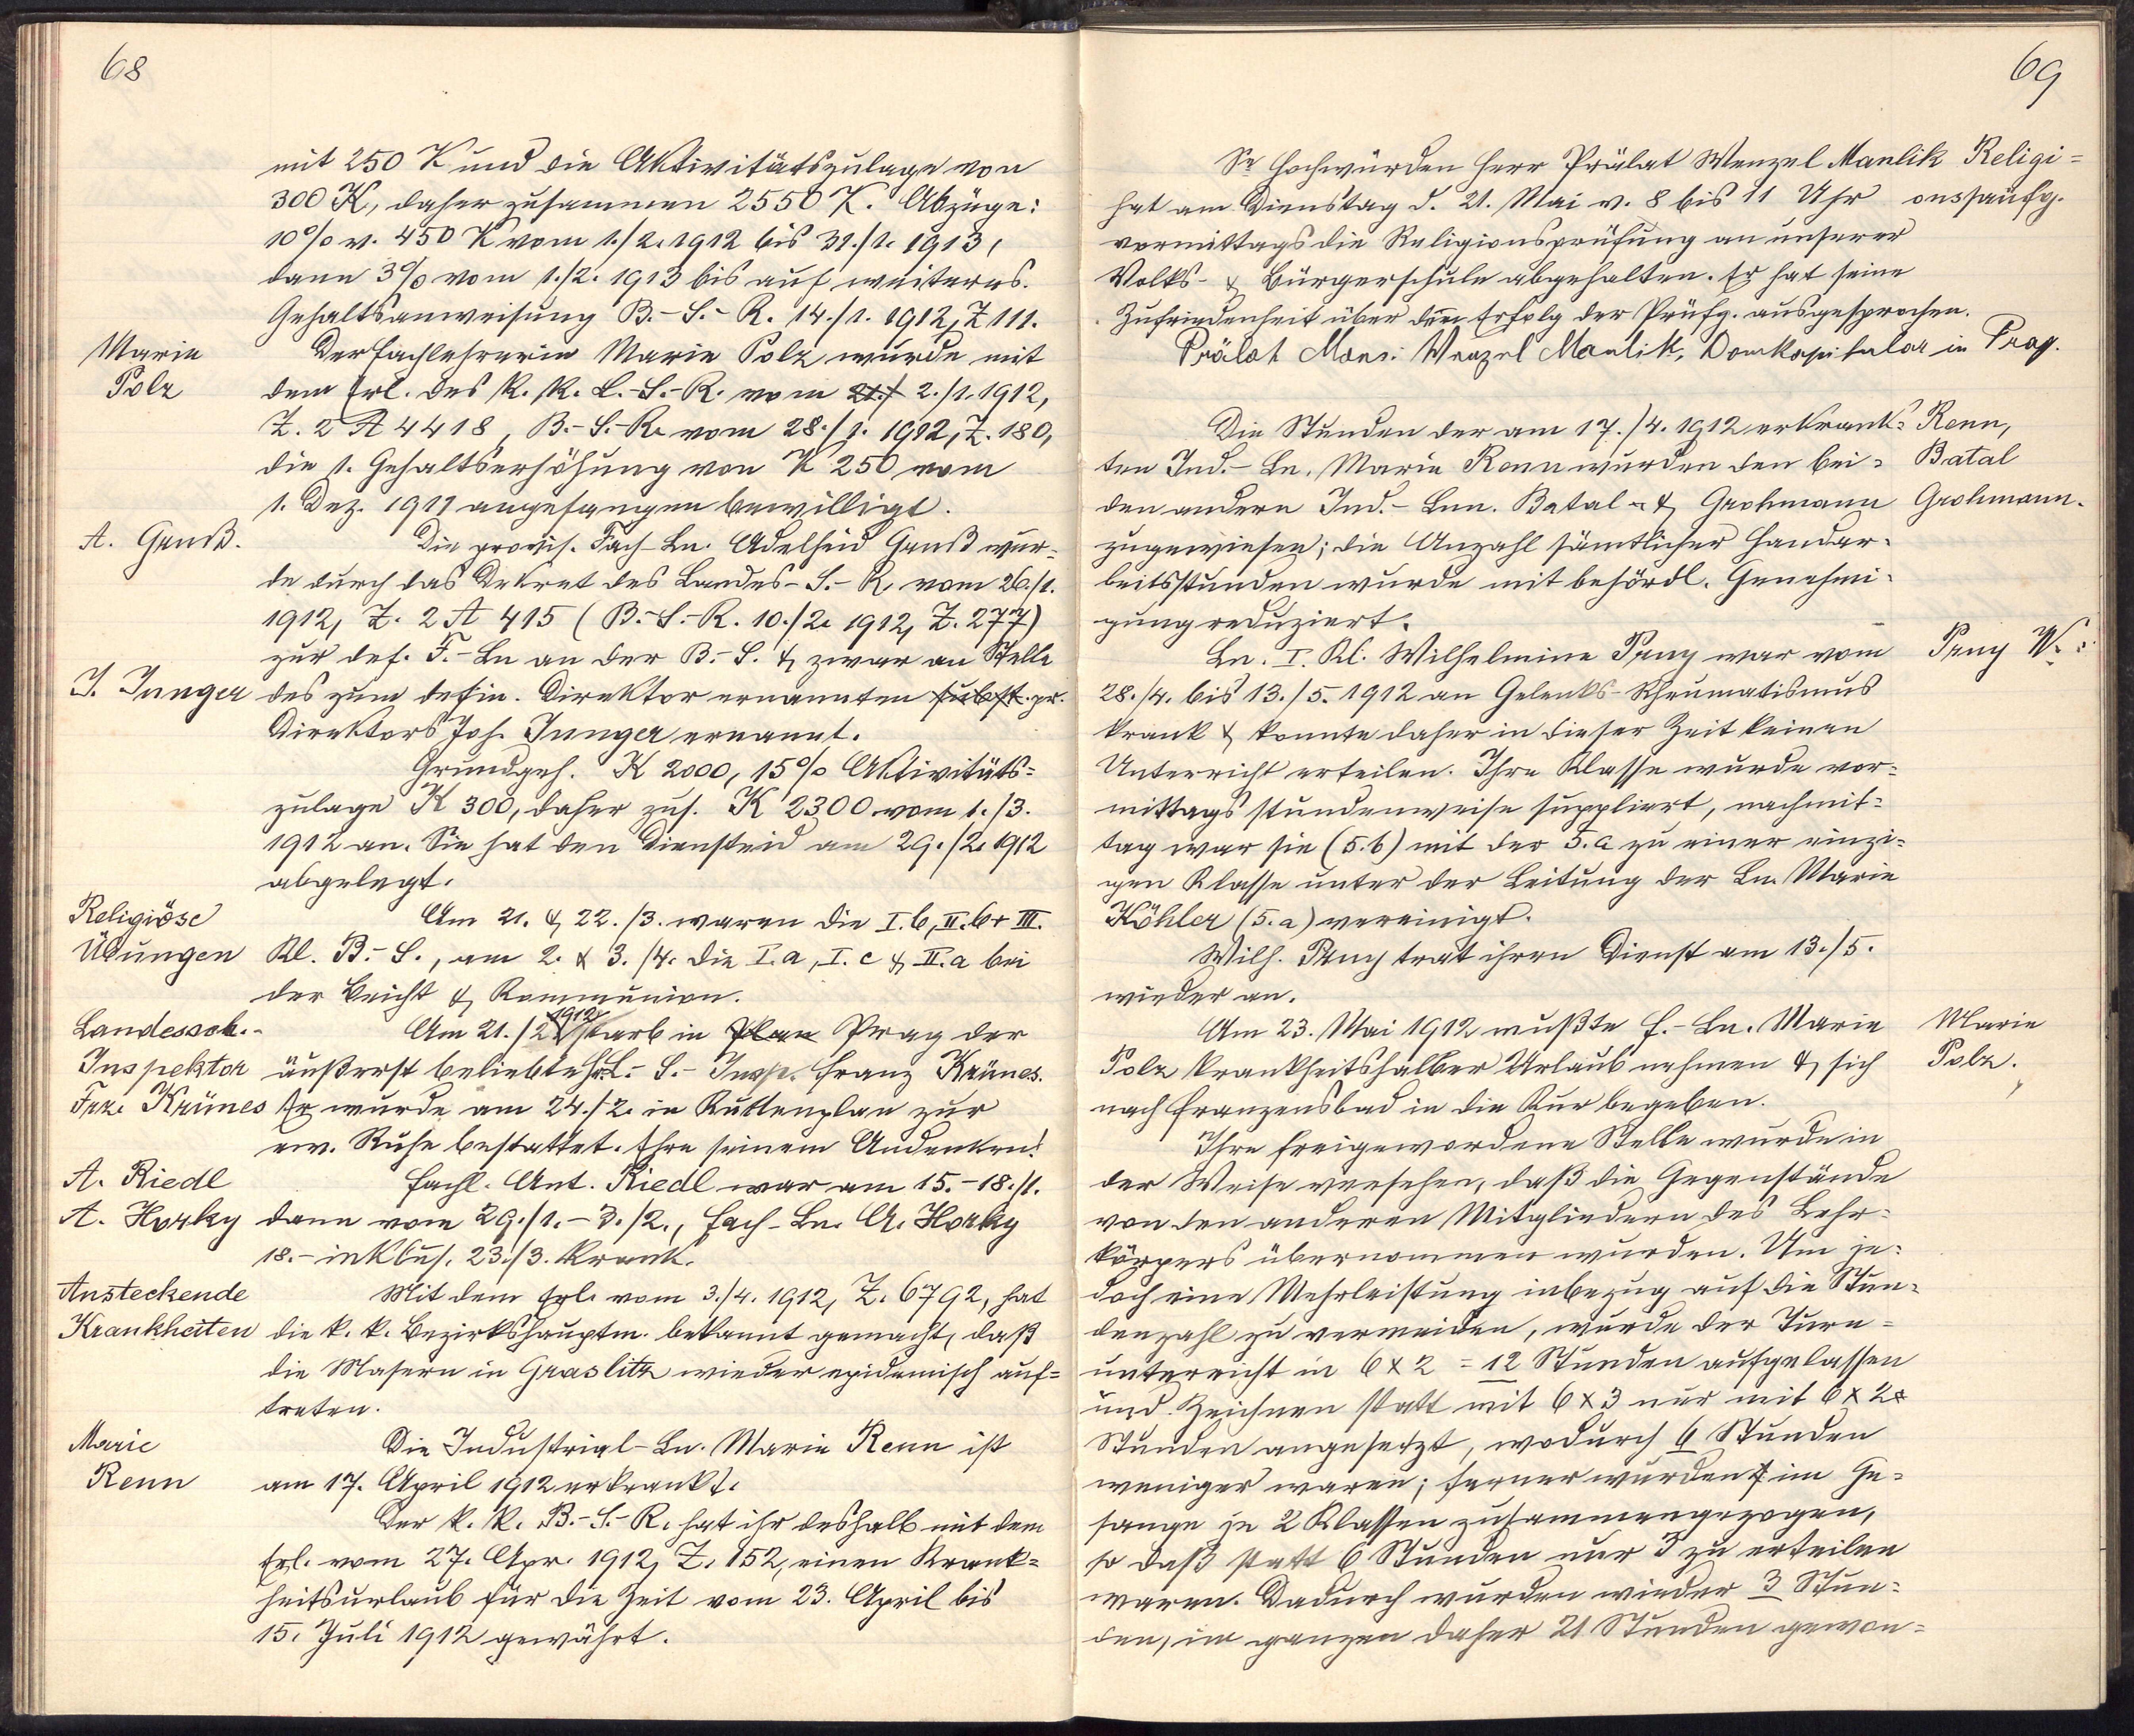 68
mit 250 K und die Aktivitätszulage von
300 K, daher zusammen 2550 K. Abzüge:
10% v. 450 K vom 1./2. 1912 bis 31./1. 1913,
dann 3% vom 1./2. 1913 bis auf weiteres.
Gehaltsanweisung B.-S.-R. 14./1. 1912, Z 111.
Marie
Polz
Der Fachlehrerin Marie Polz wurde mit
dem Erl. des k. k. L.-S.-R. vom 21./ 2./1. 1912,
Z. 2 A 4418, B.-S.-R. vom 28./1. 1912, Z. 180,
die 1. Gehaltserhöhung von K 250 vom
1. Dez. 1911 angefangen bewilligt.
A. Ganß.
Die provis. Fach-Ln. Adelheid Ganß wur=
de durch das Dekret des Landes-S.-R. vom 26./1.
1912, Z. 2 A 415 (B.-S.-R. 10./2. 1912, Z. 277)
zur def. F.-Ln an der B.-S. & zwar an Stelle
J. Junger
des zum defin. Direktor ernannten subst. pr.
Direktors Joh. Junger ernannt.
Grundgeh. K 2000, 15% Aktivitäts=
zulage K 300, daher zus. K 2300 vom 1./3.
1912 an. Sie hat den Diensteid am 29./2. 1912
abgelegt.
Religiöse
Übungen
Am 21. & 22./3. waren die I.b, II.b + III.
Kl. B.-S., am 2. & 3./4. die I.a, I.c & II.a bei
der Beicht & Kommunion.
Landessch.-
Inspektor
Frz. Krünes
Am 21./2. 1912 starb in Plan Prag der
äußerst beliebte L.-S.-Insp. Franz Krünes.
Er wurde am 24./2. in Kuttenplan zur
ew. Ruhe bestattet. Ehre seinem Andenken!
A. Riedl
A. Horky
Fachl. Ant. Riedl war am 15.-18./1.
dann vom 29./1.-3./2., Fach-Ln. A. Horky
18.- inklus. 23./3. krank.
Ansteckende
Krankheiten
Mit dem Erl. vom 3./4. 1912, Z. 6792, hat
die k. k. Bezirkshauptm. bekannt gemacht, daß
die Masern in Graslitz wieder epidemisch auf=
treten.
Marie
Renn
Die Industrial-Ln. Marie Renn ist
am 17. April 1912 erkrankt.
Der k. k. B.-S.-R. hat ihr deshalb mit dem
Erl. vom 27. Apr. 1912, Z. 152, einen Krank=
heitsurlaub für die Zeit vom 23. April bis
15. Juli 1912 gewährt.
69
Se Hochwürden Herr Prälat Wenzel Manlik
Religi=
hat am Dienstag d. 21. Mai v. 8 bis 11 Uhr
vormittags die Religionsprüfung an unserer
Volks- & Bürgerschule abgehalten. Er hat seine
Zufriedenheit über den Erfolg der Prüfg. ausgesprochen.
Prälat Mons. Wenzel Manlik, Domkapitular in Prag.
Die Stunden der am 17./4. 1912 erkrank=
ten Ind.-Ln. Marie Renn wurden den bei=
den andern Ind.-Lnn. Batal & Grohmann
zugewiesen; die Anzahl sämtlicher Handar=
beitsstunden wurde mit behördl. Genehmi=
gung reduziert.
Renn,
Batal
Grohmann.
Ln. I. Kl. Wilhelmine Peny war vom
Peny W.
28./4. bis 13./5. 1912 an Gelenks-Rheumatismus
krank & konnte daher in dieser Zeit keinen
Unterricht erteilen. Ihre Klasse wurde vor=
mittags stundenweise suppliert, nachmit=
tag war sie (5.b) mit der 5.a zu einer einzi=
gen Klasse unter der Leitung der Ln. Marie
Köhler (5.a) vereinigt.
Wilh. Peny trat ihren Dienst am 13./5.
wieder an.
Am 23. Mai 1912 mußte F.-Ln. Marie
Polz krankheitshalber Urlaub nehmen & sich
nach Franzensbad in die Kur begeben.
Marie
Polz.
Ihre freigewordene Stelle wurde in
der Weise versehen, daß die Gegenstände
von den anderen Mitgliedern des Lehr=
körpers übernommen wurden. Um je=
doch eine Mehrleistung inbezug auf die Stun=
denzahl zu vermeiden, wurde der Turn=
unterricht in 6 x 2 = 12 Stunden aufgelassen
und Zeichnen statt mit 6 x 3 nur mit 6 x 2
Stunden angesetzt, wodurch 6 Stunden
weniger waren; ferner wurden im Ge=
sange je 2 Klassen zusammengezogen,
so daß statt 6 Stunden nur 3 zu erteilen
waren. Dadurch wurden wieder 3 Stun=
den, im ganzen daher 21 Stunden gewon=